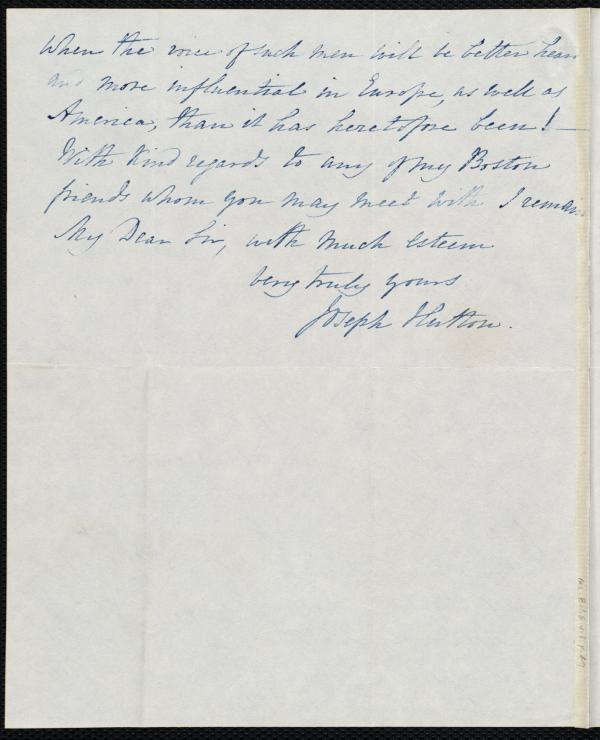 When the voice of such men will be better hear
and more influential in Europe, as well as
America, than it has heretofore been! —
With kind regards to any of my Boston
friends whom you may meet with I remain
My Dear Sir, with much esteem
very truly yours
Joseph Hutton.